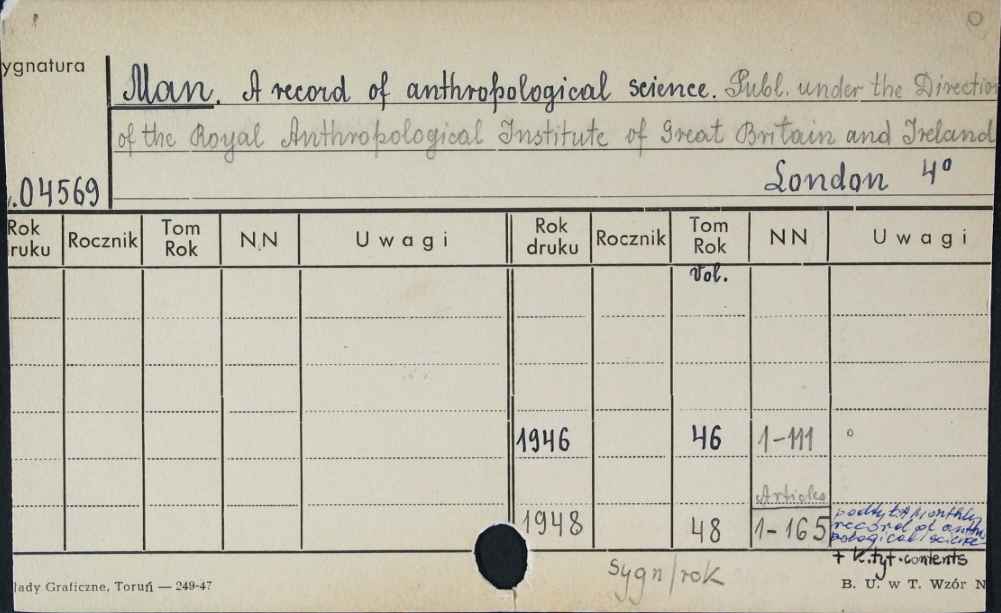 ygnatura
Man. A record of anthropological science. Publ. under the Direction
of the Royal Anthropological Institute of Great Britain and Ireland
London 4°
.04569
Rok druku Rocznik Tom Rok NN Uwagi Rok druku Rocznik Tom Rok NN Uwagi
Vol.
1946 46 1-111
Articles
1948 48 1-165
podtyt. A monthly
record of anthro
pological science
+ k.tyt. contents
łady Graficzne, Toruń — 249-47
sygn/rok
B. U. w T. Wzór N